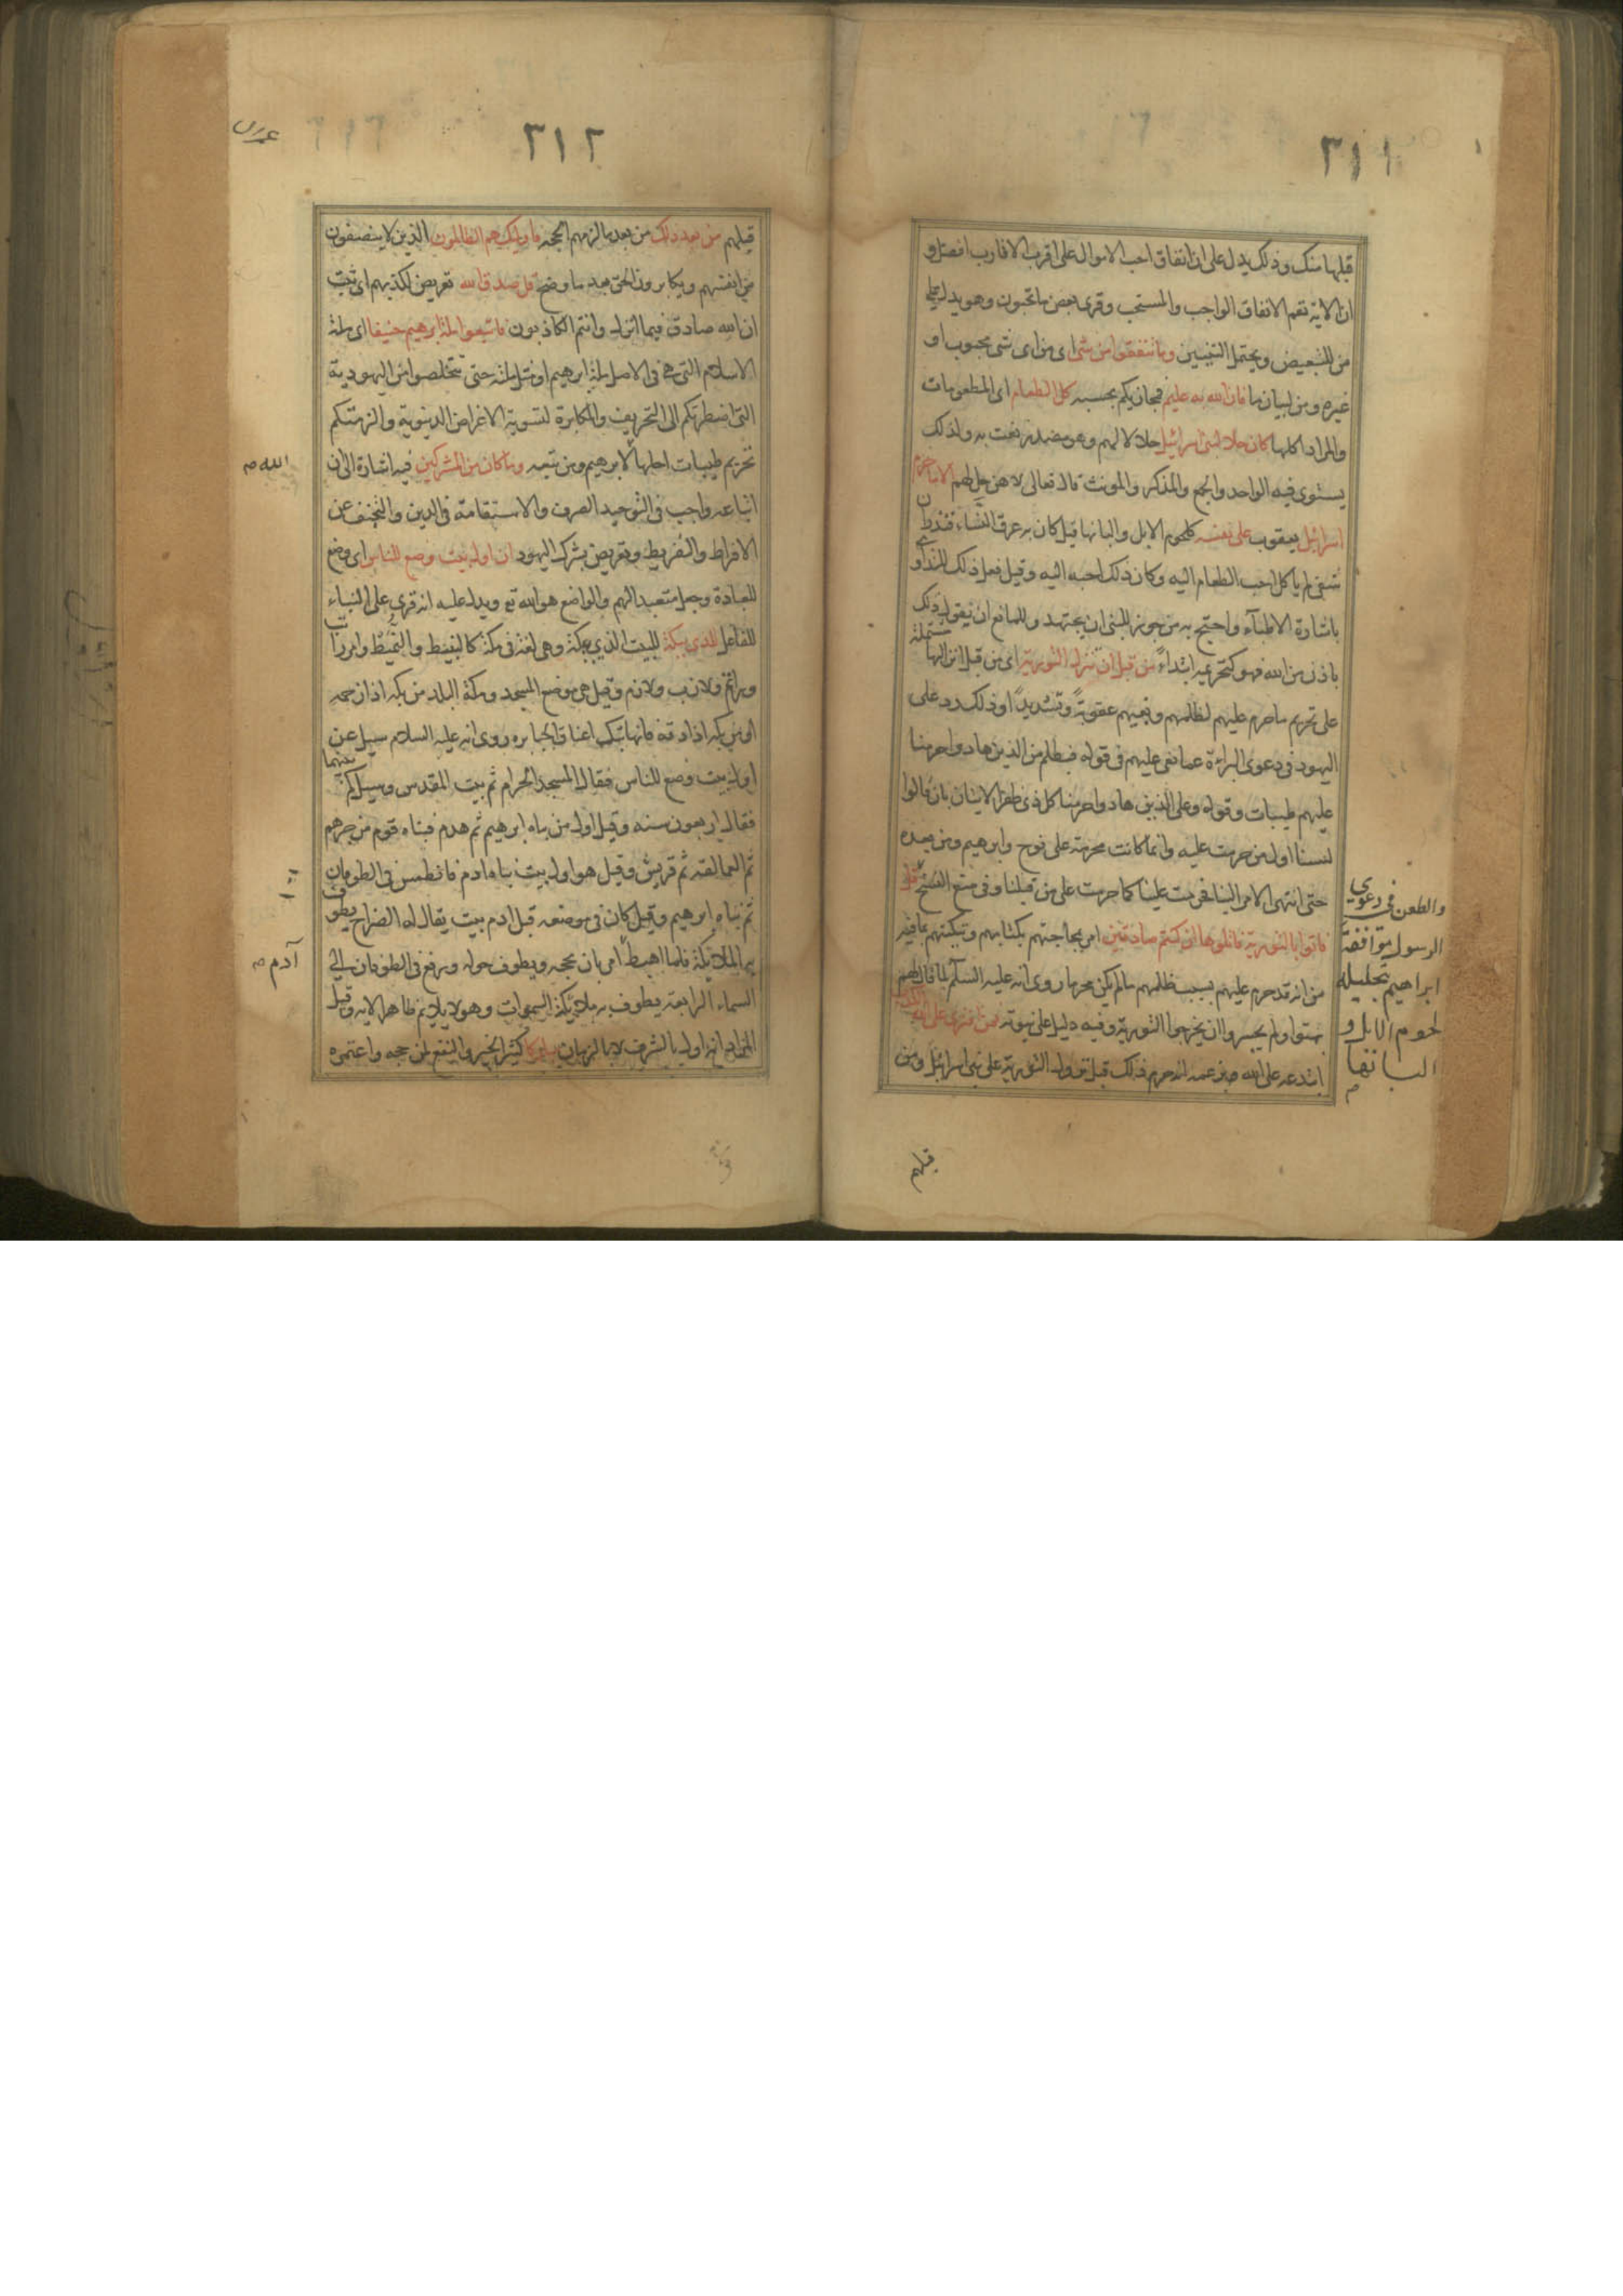 ٣١١
قبلها منك وذلك يدل على ان انفاق احب الاموال على اقرب الاقارب افضل و
ان الاية تعم الانفاق الواجب والمستحب وقرئ بعض ما تحبون وهو يدل على
من للتبعيض ويحتمل التبيين وما تنفقوا من شئ اى من اى شئ محبوب او
غيره ومن لبيان ما فان الله به عليم فيجازيكم بحسبه كل الطعام اى المطعومات
والمراد اكلها كان حلا لبنى اسرائيل حلالا لهم وهو مصدر نعت به ولذلك
يستوى فيه الواحد والجمع والمذكر والمونث قال تعالى لا هن حل لهم الا ما حرم
اسرائيل يعقوب على نفسه كلحوم الابل والبانها قيل كان به عرق النساء فنذر ان
شفى لم ياكل احب الطعام اليه وكان ذلك احبه اليه وقيل فعل ذلك للتداوى
باشارة الاطبآء واحتج به من جوز للنبى ان يجتهد وللمانع ان يقول ذلك
باذن من الله فهو كتحريمه ابتداءً من قبل ان تنزل التورية اى من قبل انزالها مشتملة
على تحريم ما حرم عليهم لظلمهم وبغيهم عقوبةً وتشديداً وذلك رد على
اليهود فى دعوى البراءة عما نعى عليهم فى قوله فبظلم من الذين هادوا حرمنا
عليهم طيبات وقوله وعلى الذين هادوا حرمنا كل ذى ظفر الايتان بان قالوا
لسنا اول من حرمت عليه وانما كانت محرمة على نوح وابرهيم ومن بعده
حتى انتهى الامر الينا فحرمت علينا كما حرمت على من قبلنا وفى منع النسخ قل
فاتوا بالتورية فاتلوها ان كنتم صادقين امر بمحاجتهم بكتابهم وتبكيتهم بما فيه
من انه قد حرم عليهم بسبب ظلمهم ما لم يكن محرما روى انه عليه السلم لما قال لهم
بهتوا ولم يجسروا ان يخرجوا التورية وفيه دليل على نبوته فمن افترى على الله الكذب
ابتدعه على الله بزعمه انه حرم ذلك قبل نزول التورية على بنى اسرائيل ومن
والطعن فى دعوى
الرسول موافقة
ابراهيم بتحليله
لحوم الابل و
البانها
قبلهم
٣١٢
قبلهم من بعد ذلك من بعد ما لزمهم الحجه فاوليك هم الظالمون الذين لا ينصفون
من انفسهم ويكابرون الحق بعد ما وضح قل صدق الله تعريض لكذبهم اى ثبت
ان الله صادق فيما انزل وانتم الكاذبون فاتبعوا ملة ابرهيم حنيفا اى ملة
الاسلام التى هى فى الاصل ملة ابرهيم او مثل ملته حتى تتخلصوا من اليهودية
التى اضطرتكم الى التحريف والمكابرة لتسوية الاغراض الدنيوية والزمتكم
تحريم طيبات احلها لابرهيم ومن تبعه وما كان من المشركين فيه اشارة الى ان
اتباعه واجب فى التوحيد الصرف والاستقامة فى الدين والتجنف عن
الافراط والتفريط وتعريض بشرك اليهود ان اول بيت وضع للناس اى وضع
للعبادة وجعل متعبدا لهم والواضع هو الله تع ويدل عليه انه قرى على البناء
للفاعل للذى ببكة للبيت الذى ببكة وهى لغة فى مكة كالنبيط والنميط وامر راتب
وراتم ولازب ولازم وقيل هى موضع المسجد ومكة البلد من بكه اذا زحمه
او من بكه اذا دقه فانها تبك اعناق الجبابره روى انه عليه السلام سيل عن
اول بيت وضع للناس فقال المسجد الحرام ثم بيت المقدس وسيل كم بينهما
فقال اربعون سنه وقيل اول من بناه ابرهيم ثم هدم فبناه قوم من جرهم
ثم العمالقه ثم قريش وقيل هو اول بيت بناه ادم فانطمس فى الطوفان
ثم بناه ابرهيم وقيل كان فى موضعه قبل ادم بيت يقال له الضراح يطوف
به الملائكة فلما اهبط امر بان يحجه ويطوف حوله ورفع فى الطوفان الى
السماء الرابعة يطوف به ملائكة السموات وهو لا يلايم ظاهر الايه وقيل
المراد انه اول بالشرف لا بالزمان مباركا كثير الخير والنفع لمن حجه واعتمره
الله
آدم